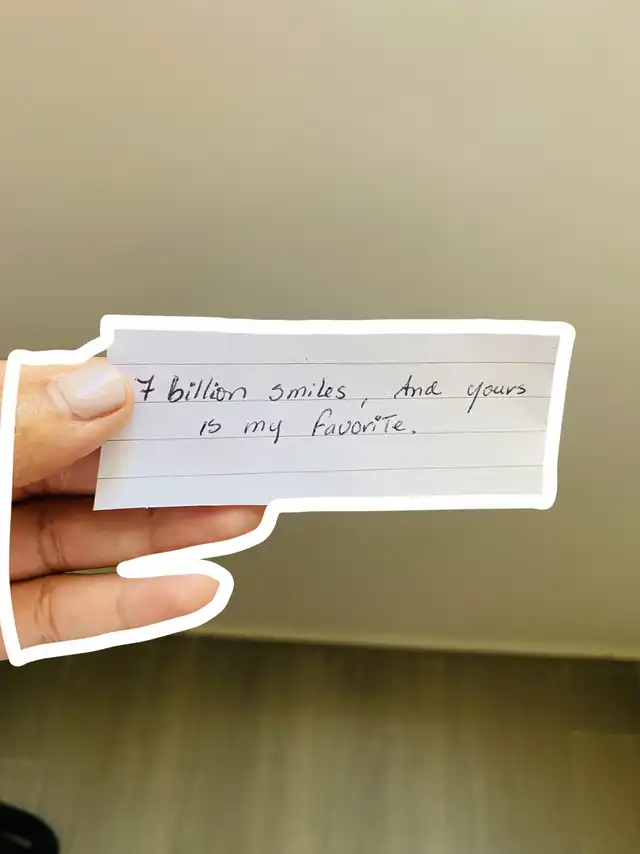 7 billion smiles, And yours
is my favorite.